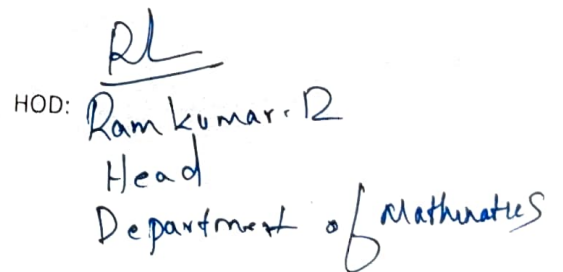 HOD: Ramkumar. R
Head
Department of Mathematics